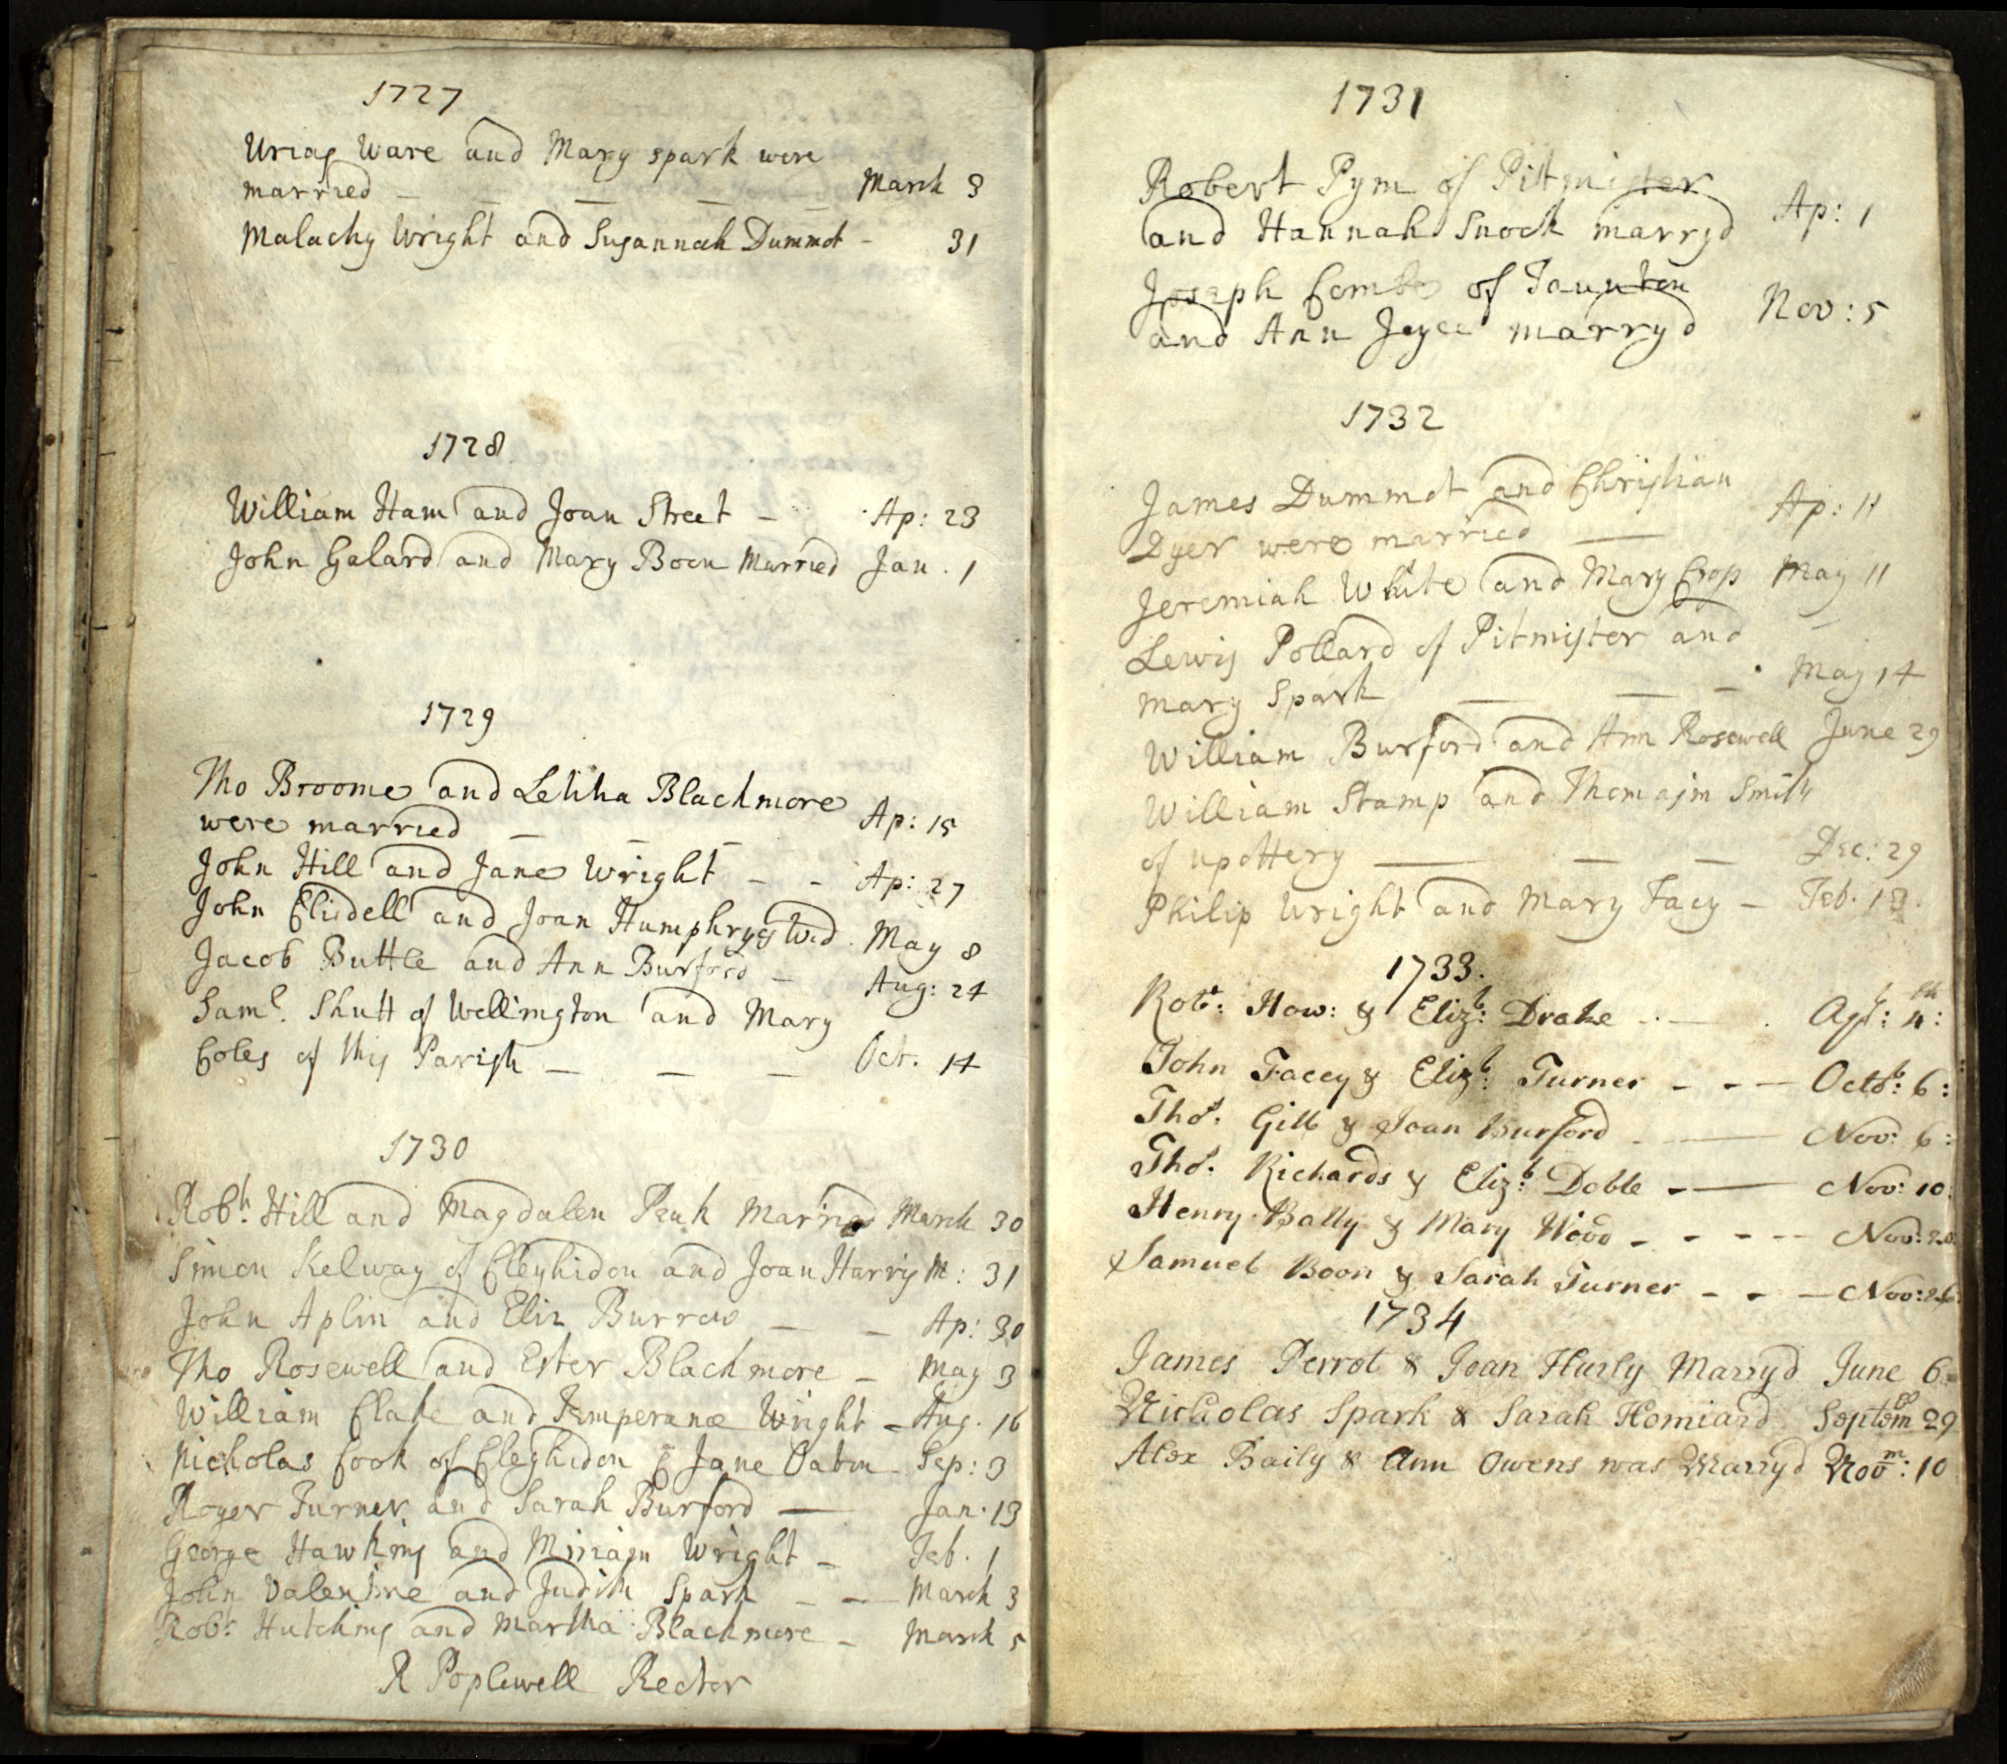 1727
Urias Ware and Mary Spark were
married - - - - - March 3
Malachy Wright and Susannah Dummot - 31
1728
William Ham and Joan Street - Ap: 23
John Galard and Mary Boon Married Jan. 1
1729
Tho Broome and Letitha Blackmore
were married - - - Ap: 15
John Hill and Jane Wright - - Ap: 27
John Clidell and Joan Humphrys Wid. May 8
Jacob Buttle and Ann Burford - Aug: 24
Saml. Shutt of Wellington and Mary
Coles of this Parish - - - Oct. 14
1730
Robt. Hill and Magdalen Married March 30
Simon Kelway of Cleyhidon and Joan Harris M: 31
John Aplin and Eliz Burrow - - Ap: 30
Tho Rosewell and Ester Blackmore - May 3
William Clake and Temperance Wright - Aug. 16
Nicholas Cook of Cleyhidon & Jane Oaten - Sep: 3
Roger Turner and Sarah Burford - Jan. 13
George Hawkins and Miriam Wright - Feb. 1
John Valentine and Judith Spark - - March 3
Robt. Hutchins and Martha Blackmore - March 5
R Poplewell Rector
1731
Robert Pym of Pitmister
and Hannah Snook marryd Ap: 1
Joseph Combe of Taunton
and Ann Joyce marryd Nov: 5
1732
James Dummot and Christian
Dyer were married - Ap: 11
Jeremiah White and Mary Crop May 11
Lewis Pollard of Pitmister and
Mary Spark - - - May 14
William Burford and Ann Rosewell June 29
William Stamp and Thomasin Smith
of upottery - - - Dec: 29
Philip Wright and Mary Facy - Feb. 18.
1733.
Robt: How: & Elizb: Drake - - . Apl: 4th:
John Facey & Elizb: Turner - - - Octobr: 6:
Thos. Gill & Joan Burford - - Nov: 6:
Thos. Richards & Elizb: Doble - - Nov: 10:
Henry Bally & Mary Wood - - - - Nov: 20
Samuel Boon & Sarah Turner - - - Nov: 26
1734
James Perrot & Joan Hurly Marryd June 6
Nicholas Spark & Sarah Homiard Septembr 29
Alex Baily & Ann Owens was Marryd Novm: 10